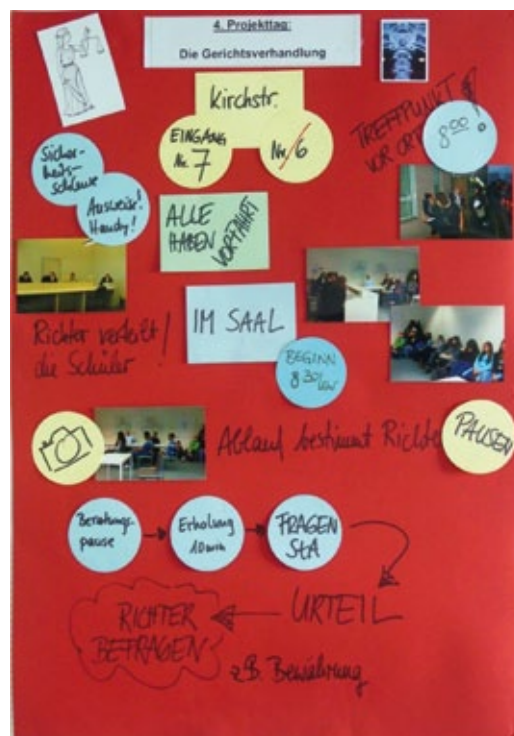 4. Projekttag:
Die Gerichtsverhandlung
Kirchstr.
EINGANG
Nr. 7
Nr. 6
TREFFPUNKT!
VOR ORT
8 00
Sicher-
heits-
schleuse
Ausweise!
Handy!
ALLE
HABEN
VORFAHRT
IM SAAL
Richter verteilt!
die Schüler
BEGINN
8 30 Uhr
Ablauf bestimmt Richter
PAUSEN
Beratungs-
pause
Erholung
10 min
FRAGEN
StA
URTEIL
RICHTER
BEFRAGEN
z.B. Bewährung